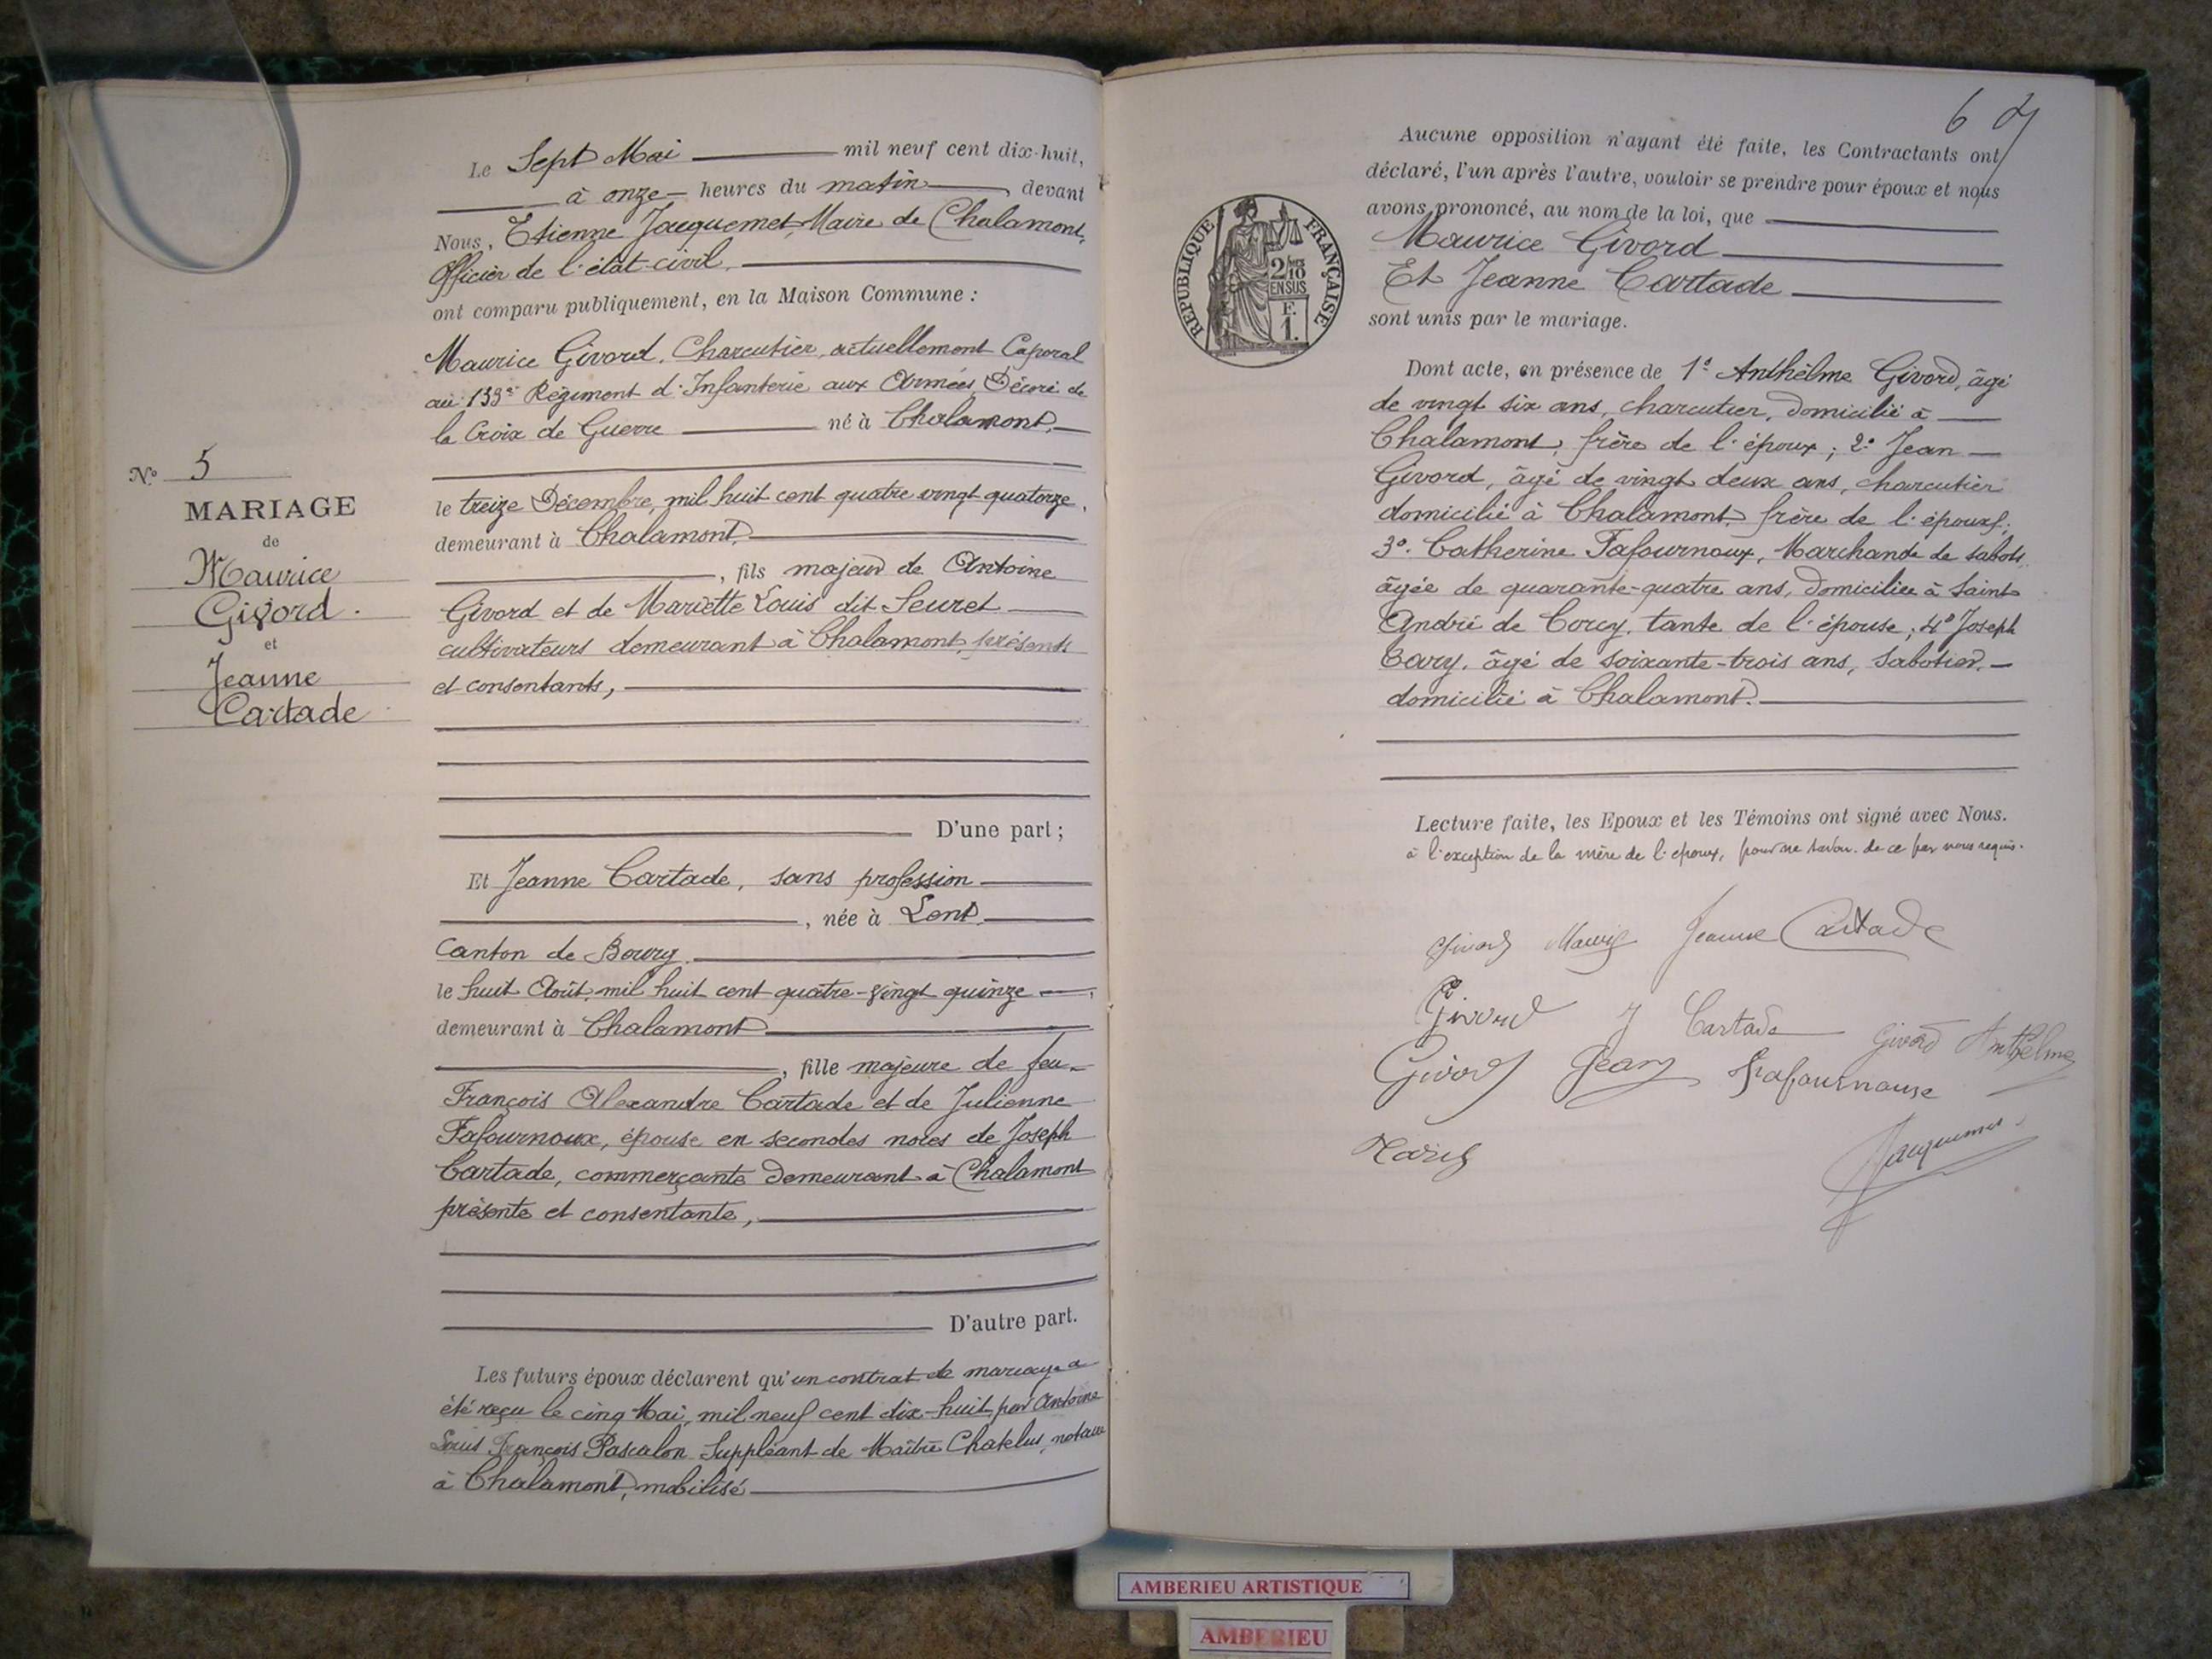 Le Sept Mai mil neuf cent dix-huit,
à onze heures du matin, devant
Nous, Etienne Jacquemet, Maire de Chalamont,
Officier de l'état-civil.
ont comparu publiquement, en la Maison Commune :
Maurice Givord, Charcutier, actuellement Caporal
au 133e Régiment d'Infanterie aux Armées Décoré de
la Croix de Guerre né à Chalamont,
le treize Décembre, mil huit cent quatre vingt quatorze,
demeurant à Chalamont,
, fils majeur de Antoine
Givord et de Mariette Louis dit Seuret
cultivateurs demeurant à Chalamont, présents
et consentants,
D'une part ;
N° 5
MARIAGE
de
Maurice
Givord.
et
Jeanne
Cartade
Et Jeanne Cartade, sans profession
, née à Lent,
Canton de Bourg.
le huit Août, mil huit cent quatre-vingt quinze,
demeurant à Chalamont
, fille majeure de feu
François Alexandre Cartade et de Julienne
Fafournoux, épouse en secondes noces de Joseph
Cartade, commerçante demeurant à Chalamont
présente et consentante,
D'autre part.
Les futurs époux déclarent qu'un contrat de mariage a
été reçu le cinq Mai, mil neuf cent dix-huit par Antoine
Louis François Pascalon Suppléant de Maître Chatelus, notaire
à Chalamont, mobilisé
6
Aucune opposition n'ayant été faite, les Contractants ont
déclaré, l'un après l'autre, vouloir se prendre pour époux et nous
avons prononcé, au nom de la loi, que
Maurice Givord
Et Jeanne Cartade
sont unis par le mariage.
REPUBLIQUE FRANÇAISE
2/10
EN SUS
F.
1.
Dont acte, en présence de 1° Anthèlme Givord, âgé
de vingt six ans, charcutier, domicilié à
Chalamont, frère de l'époux ; 2° Jean
Givord, âgé de vingt deux ans, charcutier
domicilié à Chalamont, frère de l'époux ;
3°. Catherine Fafournoux, Marchande de sabots,
âgée de quarante-quatre ans, domiciliée à Saint
André de Corcy, tante de l'épouse ; 4° Joseph
âgé de soixante-trois ans, Sabotier,
domicilié à Chalamont.
Lecture faite, les Epoux et les Témoins ont signé avec Nous.
à l'exception de la mère de l'époux, pour ne savoir, de ce par nous requis.
Givord Maurice Jeanne Cartade
Givord J Cartade Givord Anthelme
Givord Jean Fafournoux
Jacquemet
AMBERIEU ARTISTIQUE
AMBERIEU